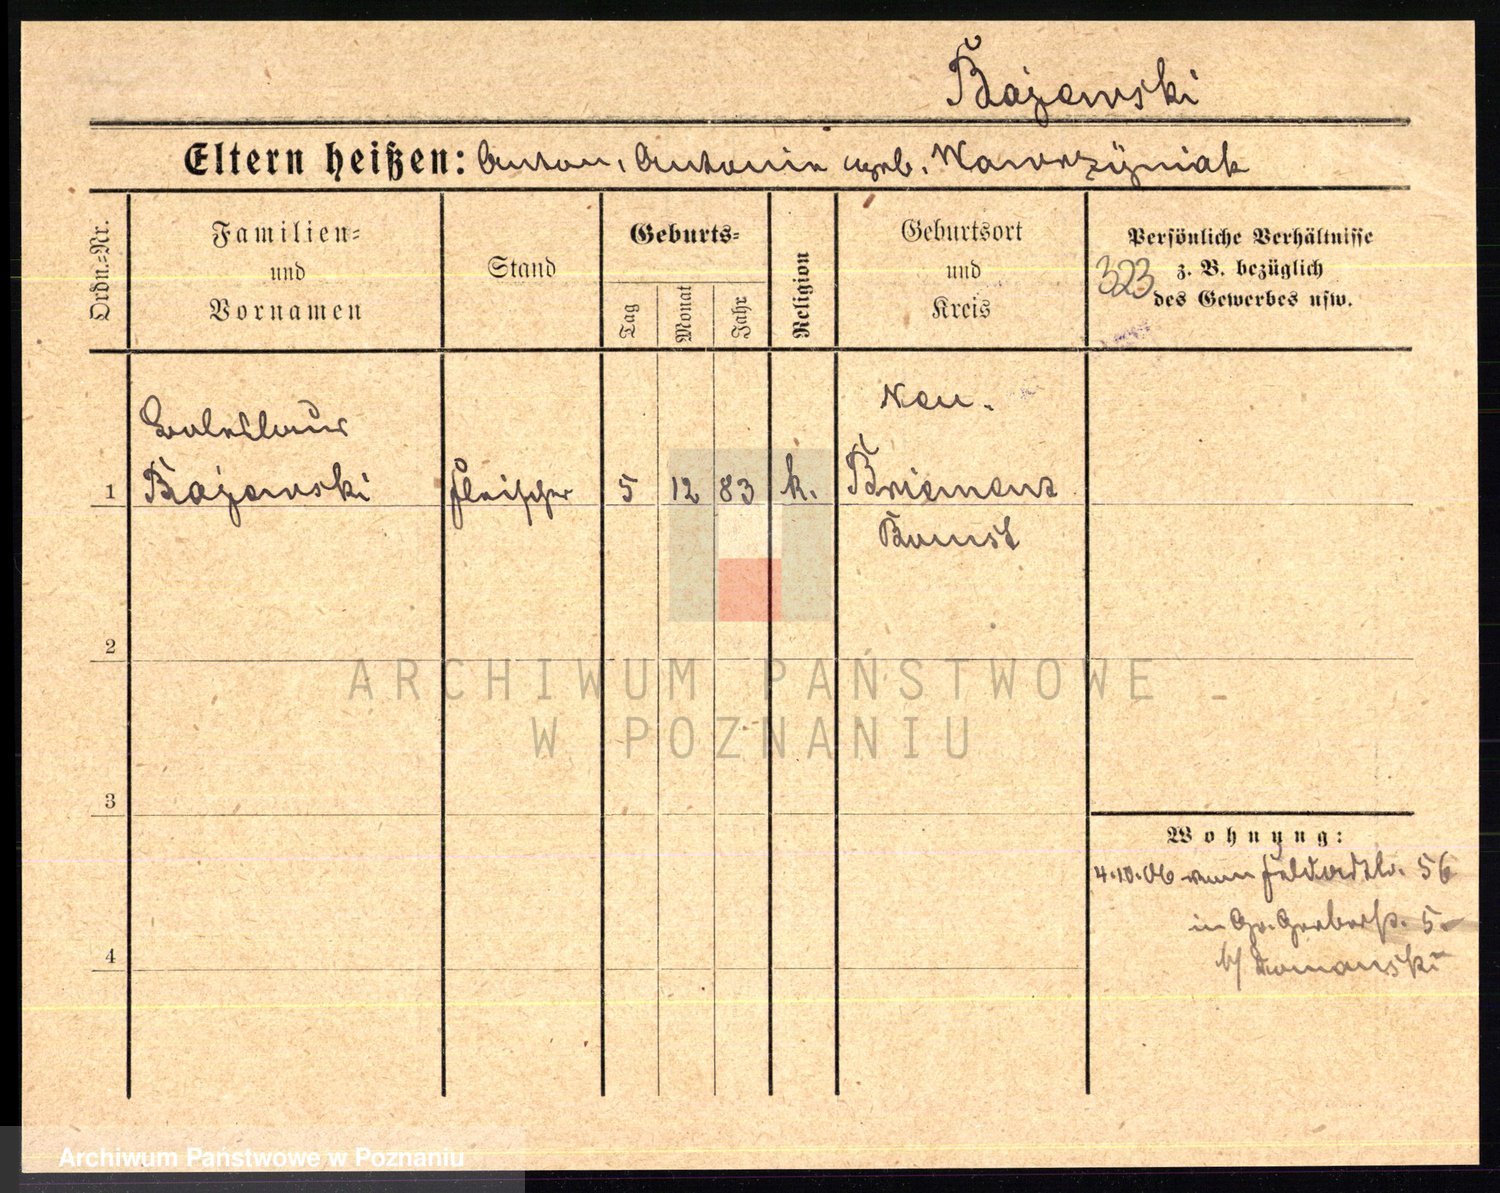 Bajewski
Eltern heißen: Anton, Antonie geb. Wawrzyniak
Ordn.-Nr.
Familien-
und
Vornamen
Stand
Geburts-
Tag
Monat
Jahr
Religion
Geburtsort
und
Kreis
Persönliche Verhältnisse
z. B. bezüglich
des Gewerbes usw.
323
Boleslaus
Neu-
1 Bajewski Fleischer 5 12 83 k. Briemenz
Bomst
2
3
4
Wohnyng:
4.10.06 56
in Gr. Gerberstr. 5.
b/ Domanski
ARCHIWUM PAŃSTWOWE
W POZNANIU
Archiwum Państwowe w Poznaniu